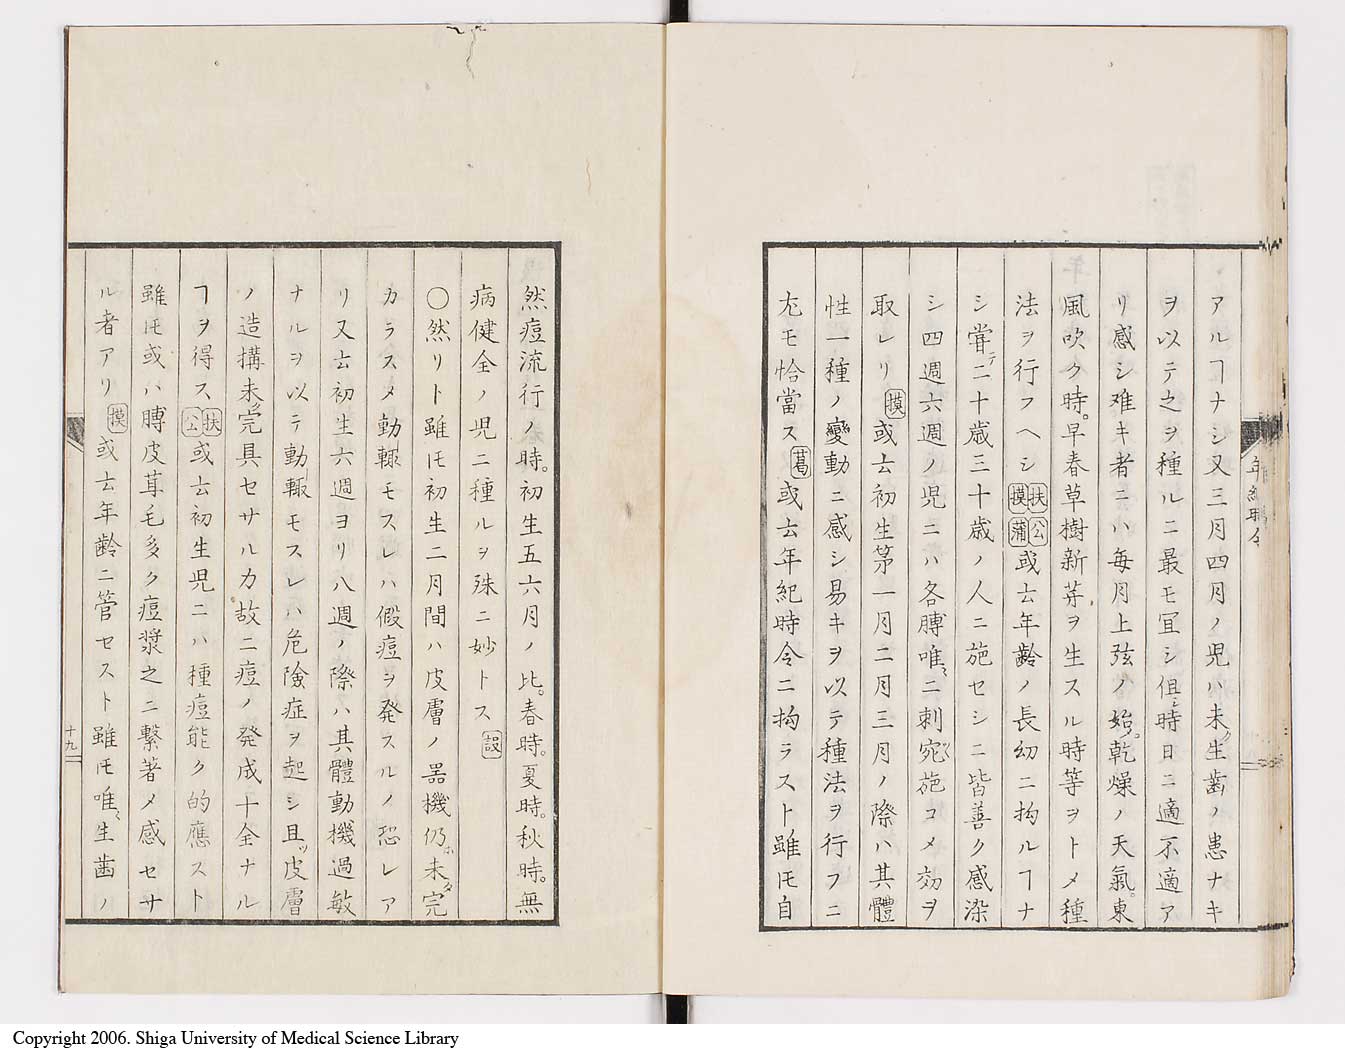 アルヿナシ又三月四月ノ児ハ未タ生歯ノ患ナキ
ヲ以テ之ヲ種ルニ最モ宜シ但シ時日ニ適不適ア
リ感シ难キ者ニハ毎月上弦ノ始。乾燥ノ天氣。東
風吹ク時。早春草樹新芽ヲ生スル時等ヲトメ種
法ヲ行フヘシ扶公摸蒲或云年齢ノ長幼ニ拘ルヿナ
シ嘗テ二十歳三十歳ノ人ニ施セシニ皆善ク感染
シ四週六週ノ児ニハ各膊唯々二刺宛施コメ効ヲ
取レリ摸或云初生苐一月二月三月ノ際ハ其體
性一種ノ變動ニ感シ易キヲ以テ種法ヲ行フニ
尤モ恰當ス葛或云年紀時令ニ拘ラスト雖𪜈自
年紀時令
然痘流行ノ時。初生五六月ノ比。春時。夏時。秋時。無
病健全ノ児ニ種ルヲ殊ニ妙トス
〇然リト雖𪜈初生二月間ハ皮膚ノ噐機仍ホ未タ完
カラスメ動輙モスレハ假痘ヲ発スルノ恐レア
リ又云初生六週ヨリ八週ノ際ハ其體動機過敏
ナルヲ以テ動輙モスレハ危険症ヲ起シ且ツ皮膚
ノ造搆未タ完具セサルカ故ニ痘ノ発成十全ナル
ヿヲ得ス扶公或云初生児ニハ種痘能ク的應スト
雖𪜈或ハ膊皮茸毛多ク痘漿之ニ繋著メ感セサ
ル者アリ摸或云年齢ニ管セスト雖𪜈唯々生歯ノ
十九
Copyright 2006. Shiga University of Medical Science Library